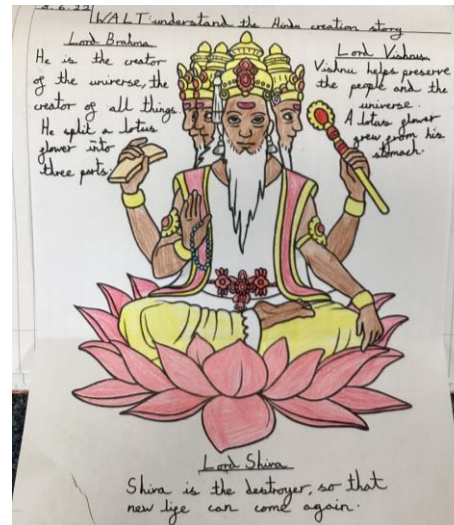 8.6.22
WALT: understand the Hindu creation story
Lord Brahma
He is the creator
of the universe, the
creator of all things.
He split a lotus
flower into
three parts.
Lord Vishnu
Vishnu helps preserve
the people and the
universe.
A lotus flower
grew from his
stomach.
Lord Shiva
Shiva is the destroyer, so that
new life can come again.